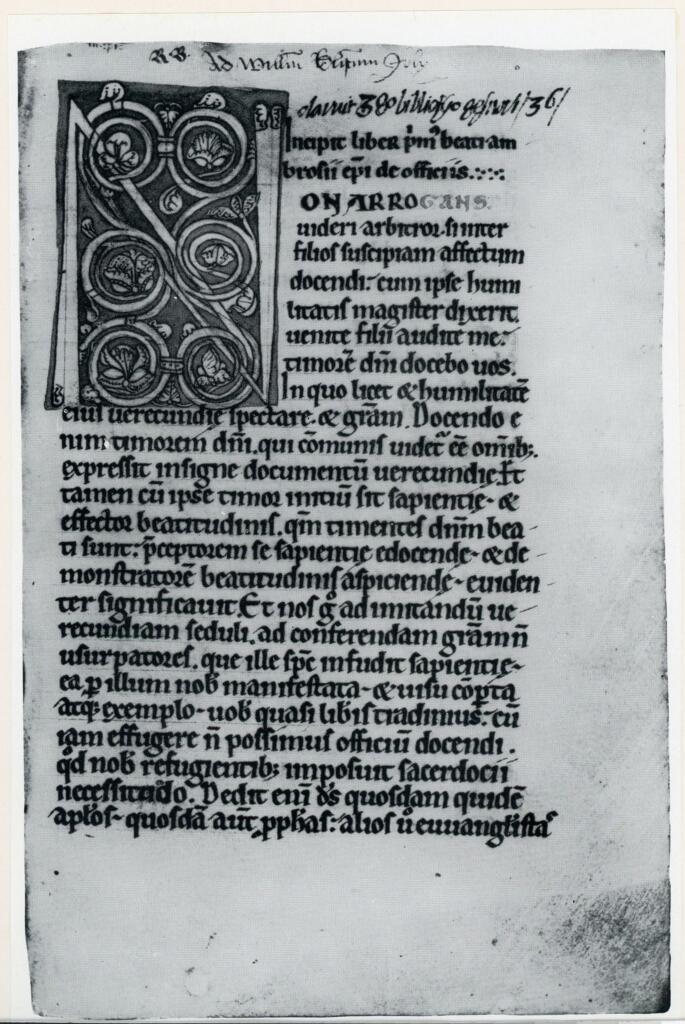 R. B. Ad
Incipit liber p̄m' beati am
brosii ep̄i de officiis.
NON ARROGANS
uideri arbitror. si inter
filios suscipiam affectum
docendi. cum ipse humi
litatis magister dixerit.
uenite filii audite me.
timorē dn̄i docebo uos.
In quo licet & humilitatē
eius uerecundie spectare. & grām. Docendo e
nim timorem dn̄i. qui cōmunis uidet᷑ eē om̄ib;.
expressit insigne documentū uerecundie. Et
tamen cū ipse timor initiū sit sapientie. &
effector beatitudinis. qm̄ timentes dn̄m bea
ti sunt. p̄ceptorem se sapientie edocende. & de
monstratorē beatitudinis aspiciende. euiden
ter significauit. Et nos g° ad imitandū ue
recundiam seduli. ad conferendam grām n̄
usurpatores. que ille sp̄c infudit sapientie.
ea p̱ illum nob̄ manifestata. & uisu cōp̱ta
atq; exemplo. uob̄ quasi libis tradimus. cū
iam effugere n̄ possimus officiū docendi.
qd̄ nob̄ refugientib; imposuit sacerdocii
necessitudo. Dedit eni d̄s quosdam quidē
apl̄os. quosdā aut̄ p̱phas. alios u° euuanglista᷒